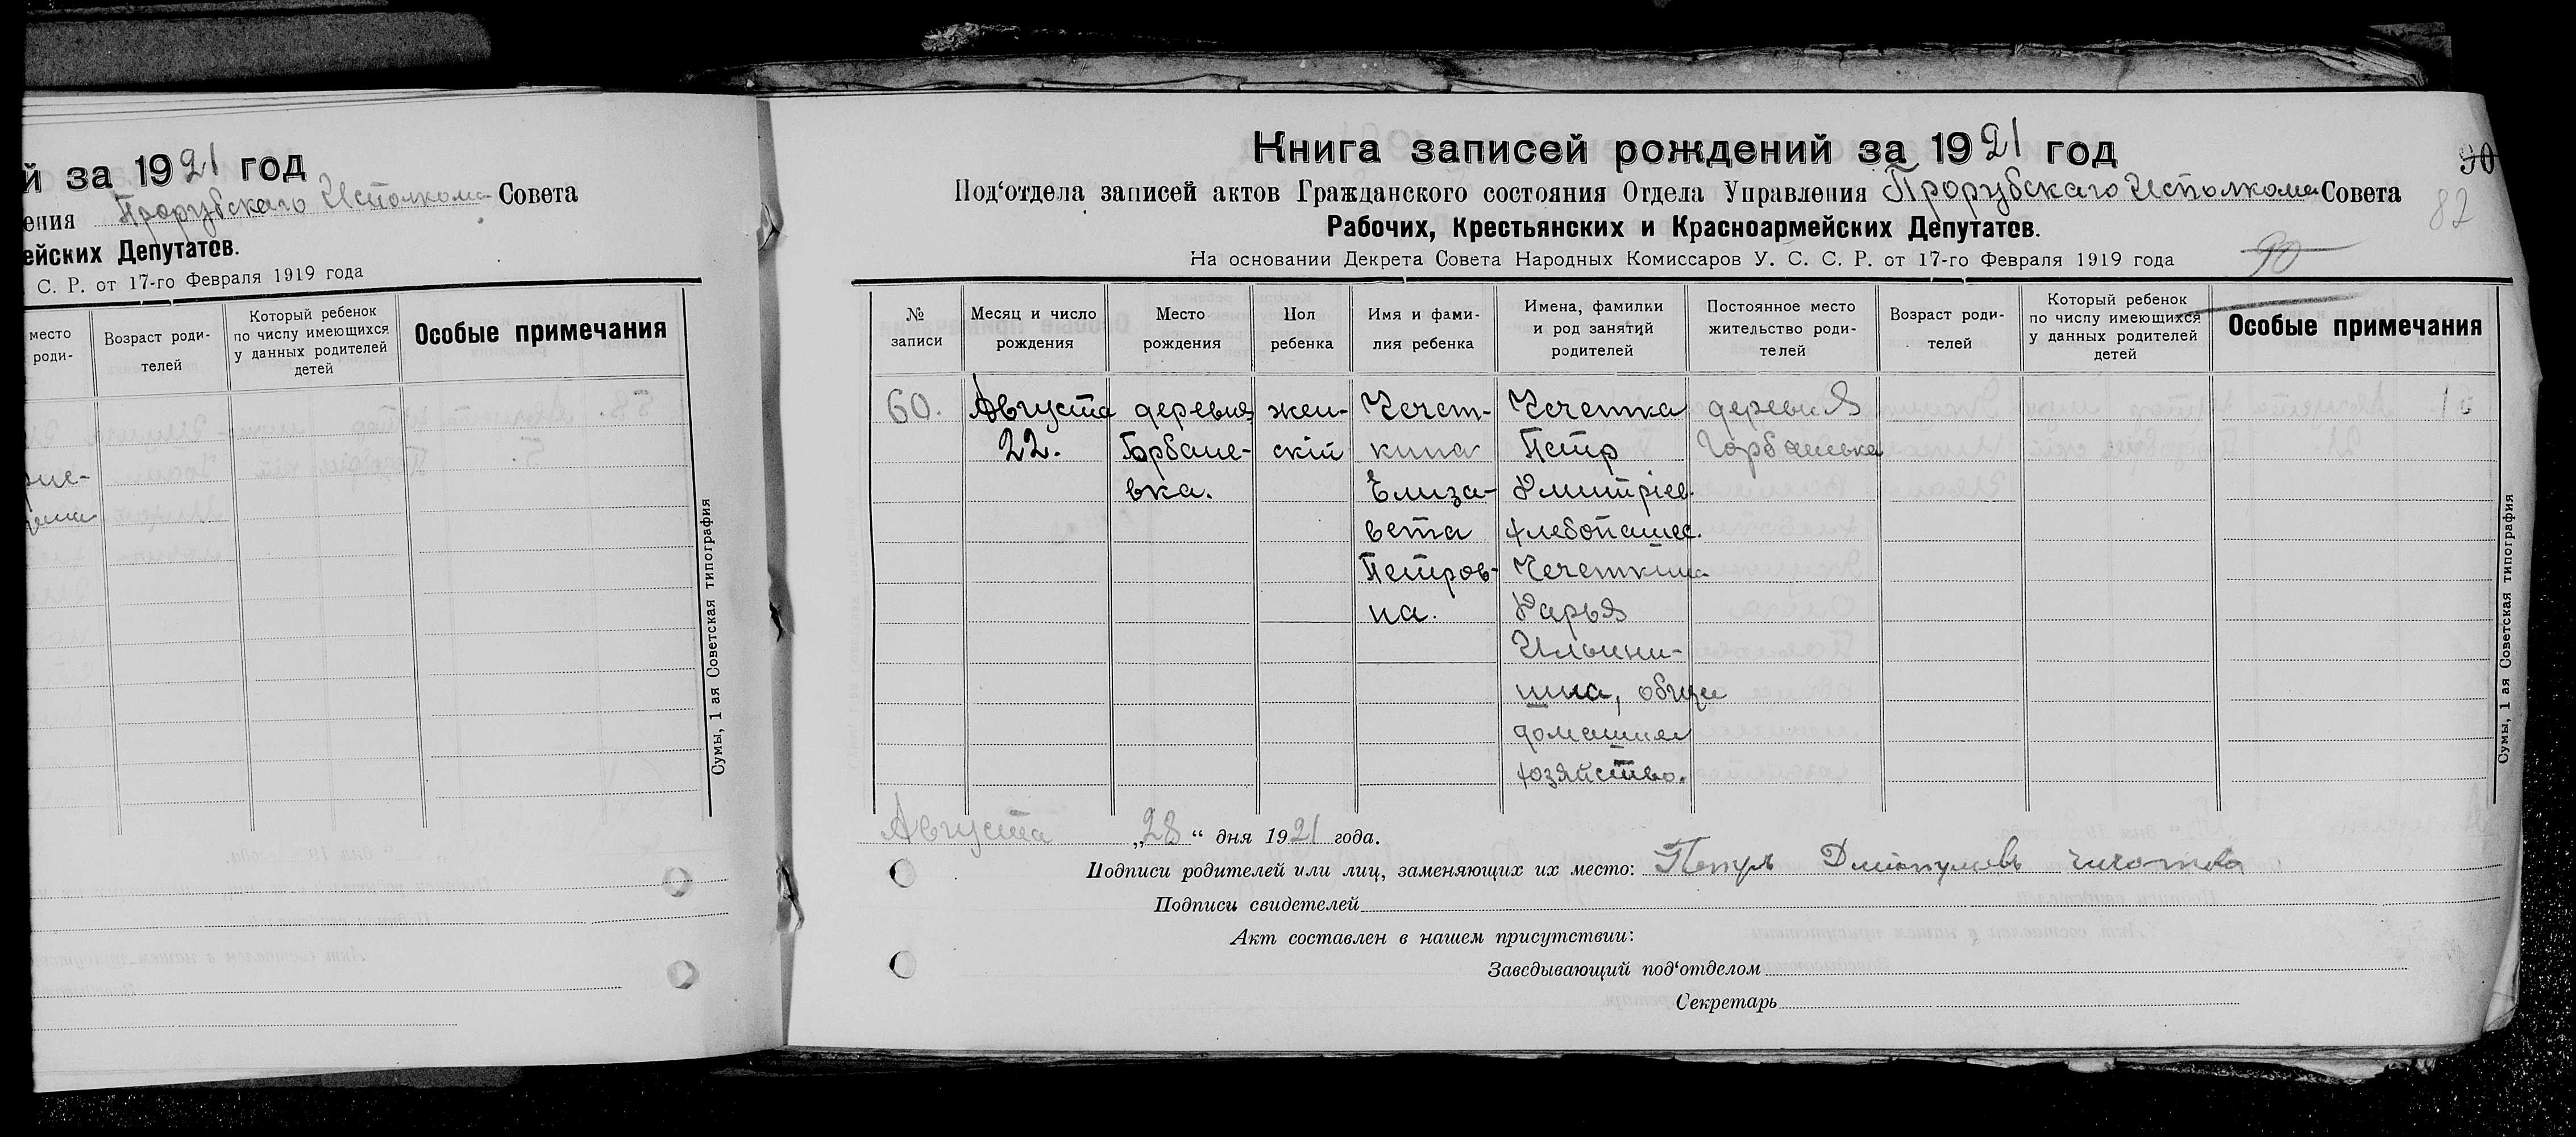 й за 1921 год
ения Прорубскаго Исполкома Совета
ейских Депутатов.
С. Р. от 17-го Февраля 1919 года
место роди-
Возраст роди-
телей
Который ребенок
по числу имеющихся
у данных родителей
детей
Особые примечания
Сумы, 1 ая Советская типография
Книга записей рождений за 1921 год
90
Под‘отдела записей актов Гражданского состояния Отдела Управления Прорубскаго Исполкома Совета
82
Рабочих, Крестьянских и Красноармейских Депутатов.
На основании Декрета Совета Народных Комиссаров У. С. С. Р. от 17-го Февраля 1919 года
90
№
записи
Месяц и число
рождения
Место
рождения
Пол
ребенка
Имя и фами-
лия ребенка
Имена, фамилии
и род занятий
родителей
Постоянное место
жительство роди-
телей
Возраст роди-
телей
Который ребенок
по числу имеющихся
у данных родителей
детей
Особые примечания
60.
Августа
22.
деревня
Горбане-
вка.
жен-
скій
Чечет-
кина
Елиза-
вета
Петров-
на.
Чечетка
Петр
Дмитріев.
хлебопашес.
Чечеткина
Дарья
Ильини-
шна, общее
домашнее
хозяйство.
деревня
Горбаневка
Сумы, 1 ая Советская типография
Августа „28“ дня 1921 года.
Подписи родителей или лиц, заменяющих их место: Петръ
Подписи свидетелей
Акт составлен в нашем присутствии:
Заведывающий под‘отделом
Секретарь